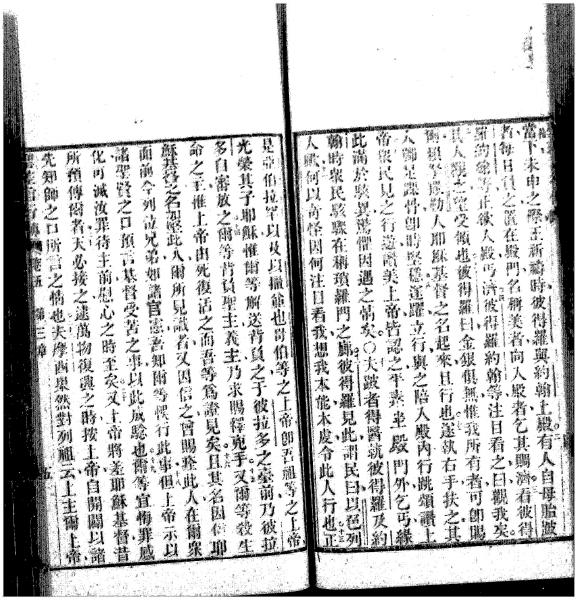 當下未申之際正祈禱時彼得羅與約翰上殿有人自母胎跛
者每日負之置在殿門名稱美者向人殿者乞其賙濟看彼得
羅約翰等正欲入殿丐濟彼得羅約翰等注目看之曰觀我矣
其人視之受賜也彼得羅曰金銀俱無惟我所有者可即賜
爾賴拿撒勒人耶穌基督之名起來且行也遂執右手扶之其
人腳足踝骨即時堅穩進躍立行與之陪入殿內行跳頌讚上
帝眾民見之行遊讚美上帝皆認之平素坐殿門外乞丐緣
此滿於駭異驚懼因遇之情矣○夫跛者得醫就彼得羅及約
翰時眾民駭驟在稱瑣羅門之廊彼得羅見此謂民曰以色列
人歟何以奇怪因何注目看我想我本能本虔令此人行也正
是亞伯拉罕以及以撒爺也哥伯等之上帝卽吾祖等之上帝
光榮其子耶穌惟爾等解送背負之于彼拉多之臺前乃彼拉
多自審放之爾等背負聖主義主乃求賜釋兇手又爾等殺生
命之王惟上帝由死復活之而吾等為證見矣且其名因信耶
穌基督之名堅此人爾所見識者又因信之曾賜痊此人在爾眾
面前今列位兄弟如諸官憲吾知爾等悞行此事但上帝示以
諸聖賢之口預言基督受苦之事以此成騐也爾等宜悔罪感
化可滅汝罪待主前慰心之時至矣又上帝將差耶穌基督昔
所預傳爾者天必接之逮萬物復興之時按上帝自開闢以諸
先知師之口所言之情也夫摩西果然對列祖云上主爾上帝
卷五 第三章 五